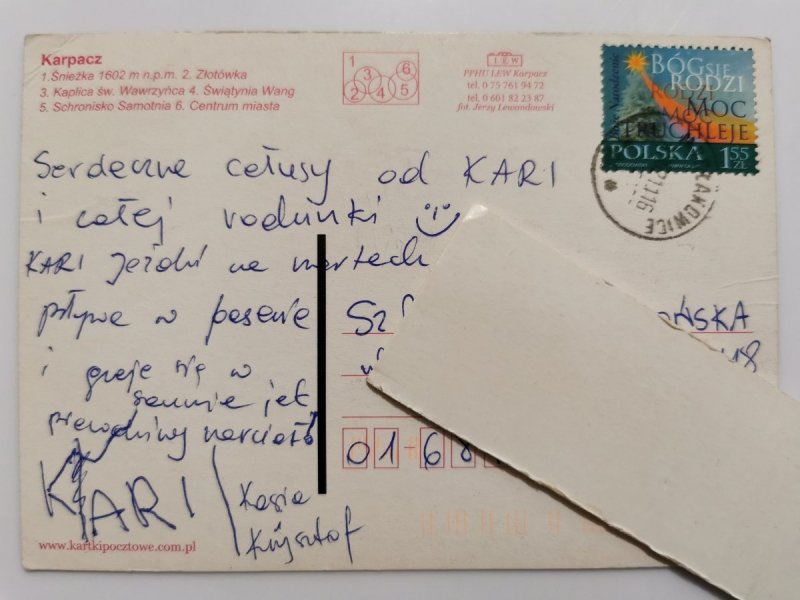 Karpacz
1.Śnieżka 1602 m n.p.m. 2. Złotówka
3. Kaplica św. Wawrzyńca 4. Świątynia Wang
5. Schronisko Samotnia 6. Centrum miasta
1
3 6
2 4 5
LEW
PPHU LEW Karpacz
tel. 0 75 761 94 72
tel. 0 601 82 23 87
fot. Jerzy Lewandowski
BÓG SIĘ
RODZI
MOC
TRUCHLEJE
POLSKA 1,55 ZŁ
Serdeczne całusy od KARI
i całej rodzinki
KARI jeździ na nartach
pływa w basenie
i grzeje się w
saunie jak
prawdziwy narciarz
KARI
Kasia
Krzysztof
01-68
www.kartkipocztowe.com.pl